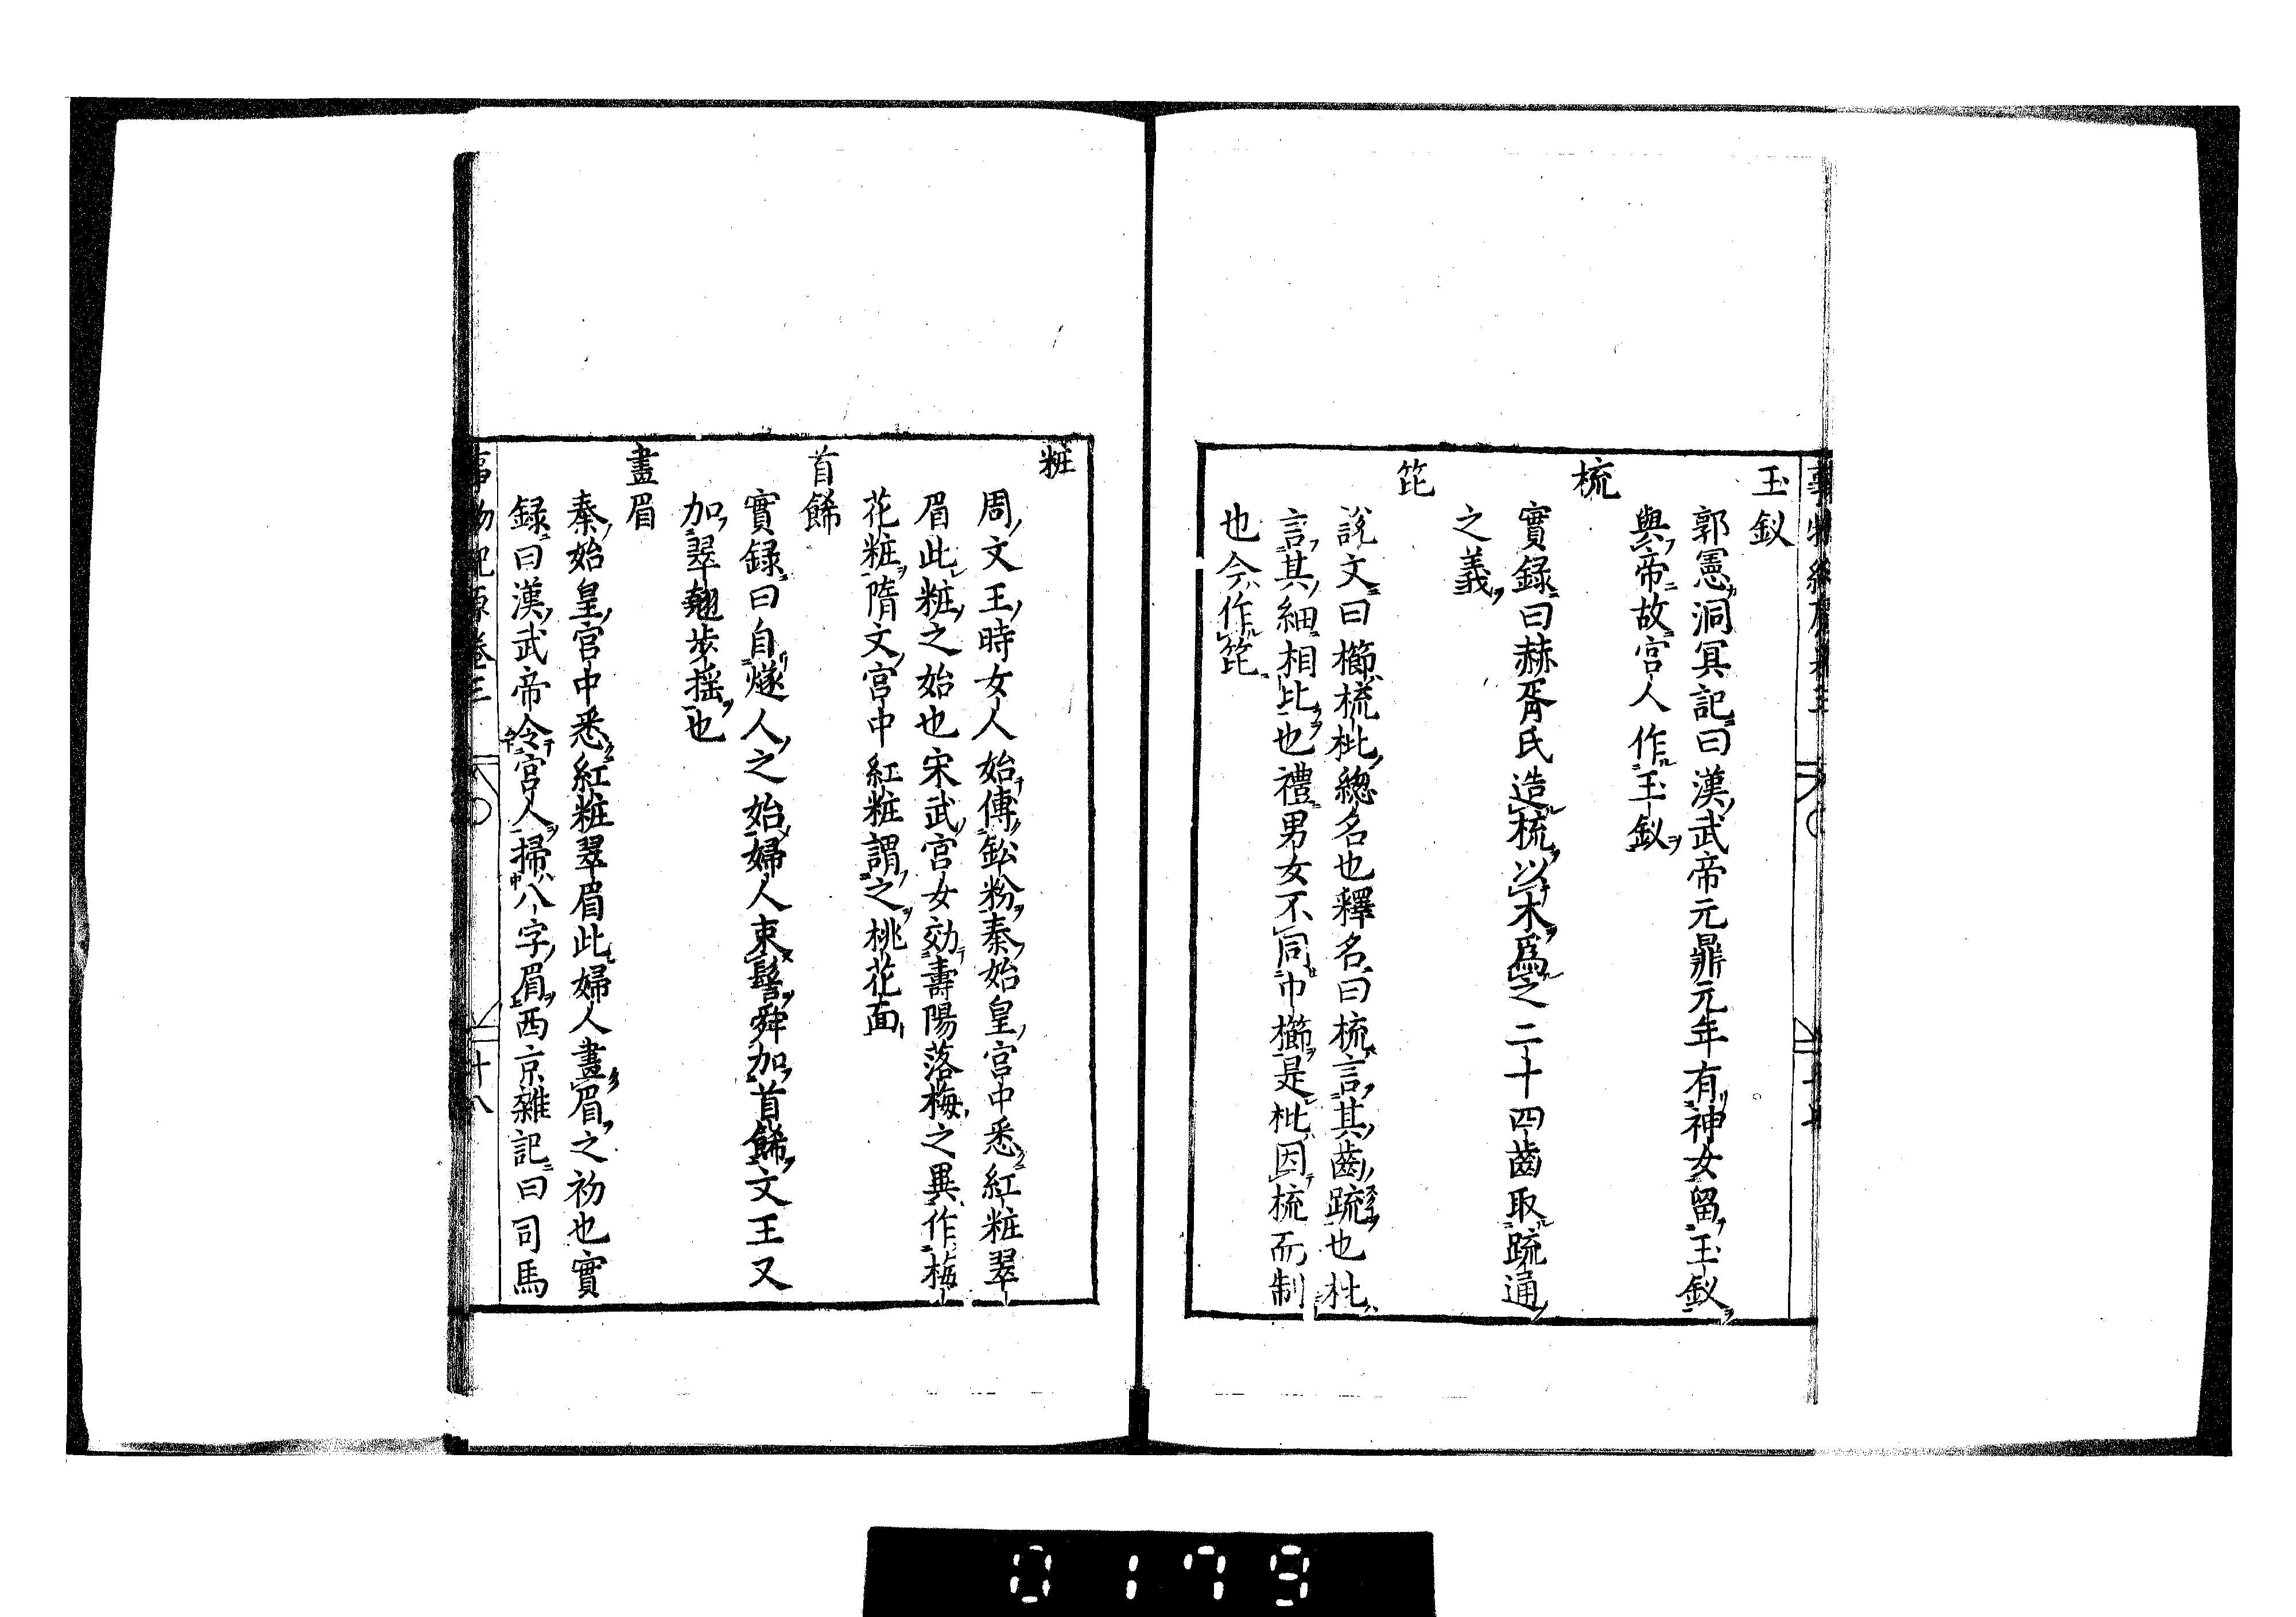 玉釵
郭憲洞冥記曰漢武帝元鼎元年有神女留玉釵
與帝故宮人作玉釵
梳
實録曰赫胥氏造梳以木爲之二十四齒取疏通
之義
笓
說文曰櫛梳枇總名也釋名曰梳言其齒疏也枇
言其細相比也禮男女不同巾櫛是枇因梳而制
也今作笓
粧
周文王時女人始傅鈆粉秦始皇宮中悉紅粧翠
眉此粧之始也宋武宮女効壽陽落梅之異作梅
花粧隋文宮中紅粧謂之桃花面
首餙
實録曰自燧人之始婦人束髻舜加首餙文王又
加翠翹步摇也
畫眉
秦始皇宮中悉紅粧翠眉此婦人畫眉之初也實
録曰漢武帝令宮人掃八字眉西京雜記曰司馬
事物紀原卷三
十八
0179